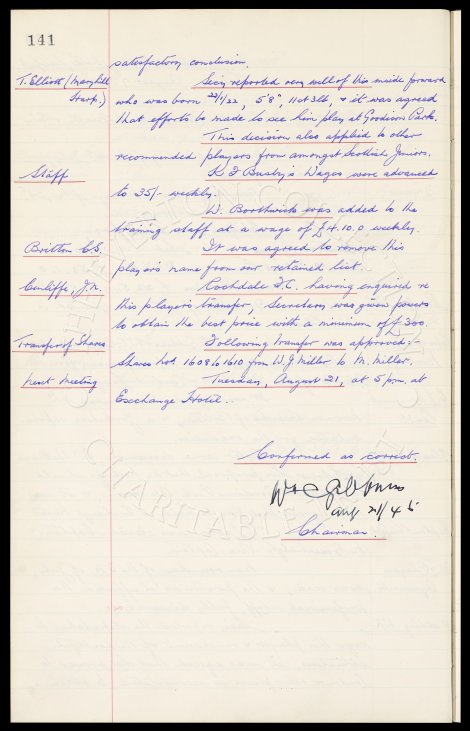 141
satisfactory conclusion.
T. Elliott (Maryhill Harp.)
Secy reported very well of this inside forward
who was born 22/1/22, 5'8", 11st 3lb, & it was agreed
that efforts be made to see him play at Goodison Park.
This decision also applied to other
recommended players from amongst Scottish Juniors.
Staff
Busby's Wages were advanced
to 35/- weekly.
W. Borthwick was added to the
training staff at a wage of £4.10.0 weekly.
Britton C.S.
It was agreed to remove this
player's name from our retained list.
Cunliffe, J.N.
Rochdale F.C. having enquired re
this player's transfer, Secretary was given powers
to obtain the best price with a minimum of £300.
Transfer of Shares
Following transfer was approved:-
Shares Nos. 1608 to 1610 from W.J. Miller to M. Miller.
Next Meeting
Tuesday, August 21, at 5 p.m. at
Exchange Hotel.
Confirmed as correct.
W C Gibbins
Aug 21/45
Chairman.
CHARITABLE